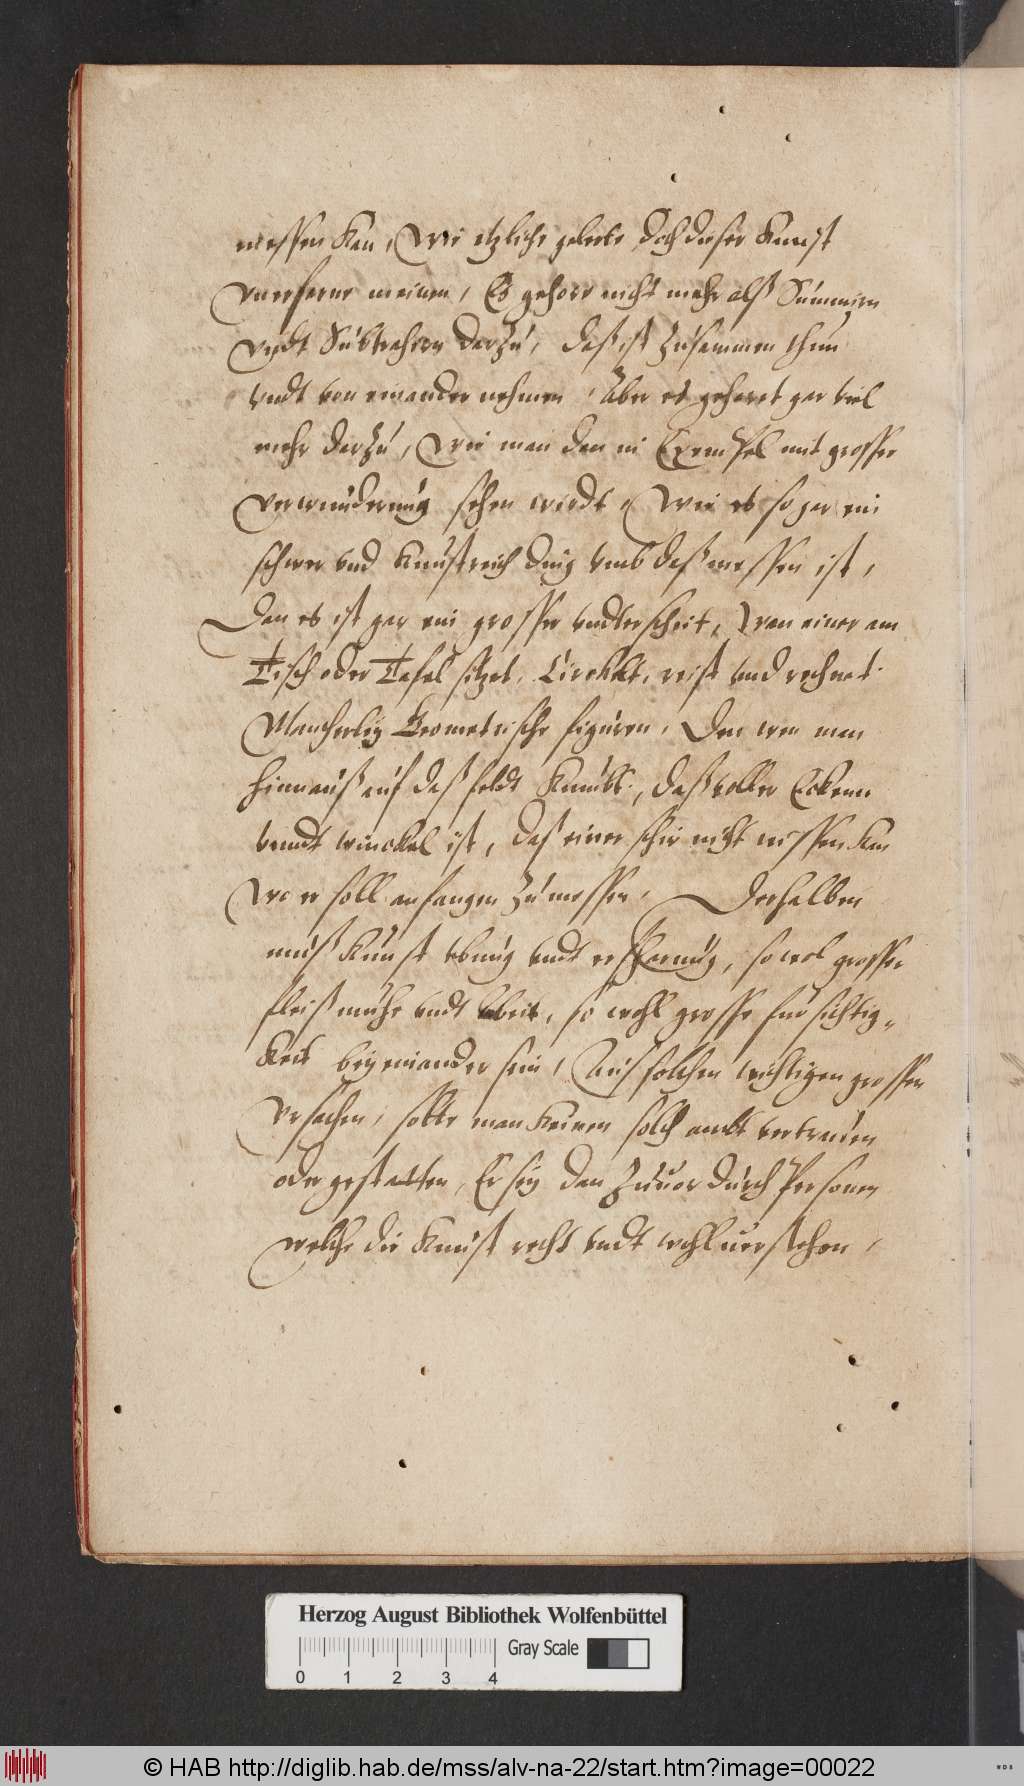 messen kan, Wie etzliche gelerte doch dieser Kunst
vnerfarne meinen, Es gehöre nicht mehr alß Summirn
vndt Subtrahirn darzu, daß ist zusammen thun
vndt von einander nehmen, Aber es gehöret gar viel
mehr darzu, Wie man den in Exempel mit grosser
verwunderung sehen wirdt, Wie es so gar ein
schwer vnd Kunstreich ding vmb daß messen ist,
Dan es ist gar ein grosser vndterscheit, Wan einer am
Tisch oder Tafel sitzet, Circkelt, reist vnd rechnet
Mancherley Geometrische figuren, Den wen man
hinnauß auf daß feldt Kumbt, daß voller Ecken
vnndt winckel ist, daß einer schir nicht wissen kan
wo er soll anfangen zu messen, Derhalben
muß Kunst vbung vndt erfharung, so wol grosser
fleiß mühe vndt Arbeit, so wohl grosse fürsichtig-
keit bey einander sein, Auß solchen wichtigen grossen
Vrsachen, solte man keinen solch ambt vertrauen
oder gestatten, Er sey dan zuuor durch Personen
welche die Kunst recht vndt wohl uerstehen,
Herzog August Bibliothek Wolfenbüttel
Gray Scale
0 1 2 3 4
© HAB http://diglib.hab.de/mss/alv-na-22/start.htm?image=00022